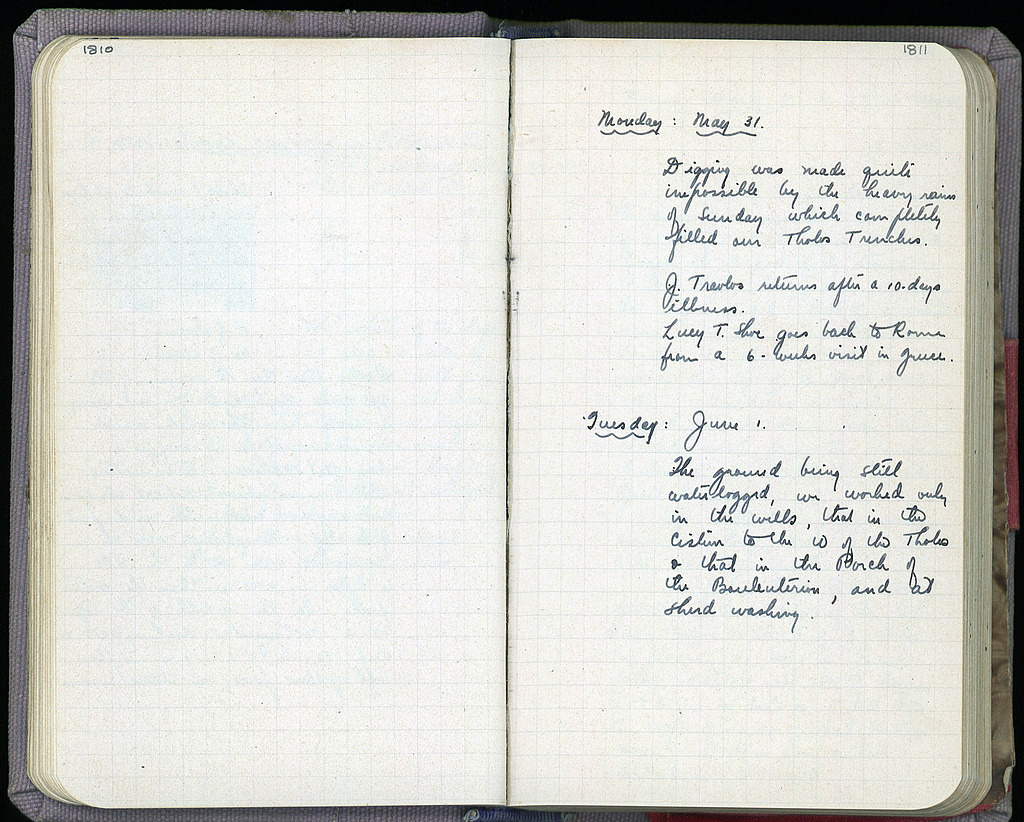 1810
1811
Monday: May 31.
Digging was made quite
impossible by the heavy rains
of Sunday which completely
filled our Tholos Trenches.
J. Travlos returns after a 10-days
illness.
Lucy T. Shoe goes back to Rome
from a 6-weeks visit in Greece.
Tuesday: June 1.
The ground being still
waterlogged, we worked only
in the wells, that in the
cistern to the W of the Tholos
& that in the Porch of
the Bouleuterion, and at
sherd washing.